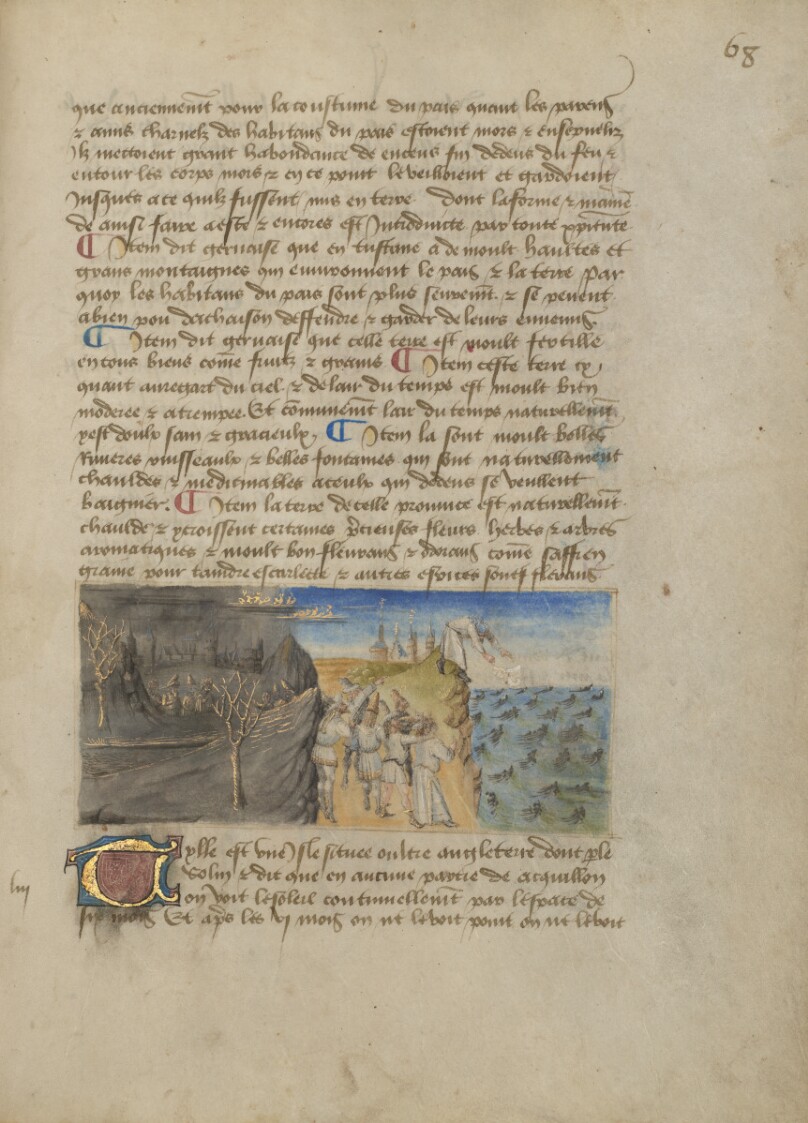 68
que anciennemt pour la coustume du pais quant les parens
& amis charnelz des habitans du pais estoient mors & enseveliz
Ilz mettoient grant habondance de encens fin dedens du feu &
entour les corps mors & en ce point le veilloient et gardoient
Jusques a ce quilz fussent mis en terre dont la forme & maniē
de ainsi faire a este & encores est Introduicte par toute xpiente
¶ Item dit gervaise que en tustane a de moult haultes et
grans montaignes qui environnent le pais & la terre par
quoy les habitans du pais sont plus seuremt & se pevent
a bien pou dachaison deffendre & garder de leurs ennemis
¶ Item dit gervaise que celle terre est moult fertille
en tous biens comē fruiz & grains ¶ Item ceste terre cy
quant au regart du ciel & de lair du temps est moult bien
moderee & atrempee Et cōmunemt lair du temps naturellemt
yest doulx sain & gracieulx ¶ Item la sont moult belles
Rivieres ruisseaulx & belles fontaines qui sont naturellement
chauldes & medicinables a ceulx qui dedens se veullent
baignier. ¶ Item la terre de celle province est naturellemt
chaulde & y croissent certaines p̄cieuses fleurs herbes & arbres
aromatiques & moult bon fleurans & odorans comē saffren
graine pour taindre escarlecte & autres espices souef flerans
Tylle est une Isle situee oultre angleterre dont ple
Solin & dit que en aucune partie de acquillon
on voit le soleil continuellemt par lespace de
six mois Et aps les vi mois on ne le voit point on ne le voit
liij